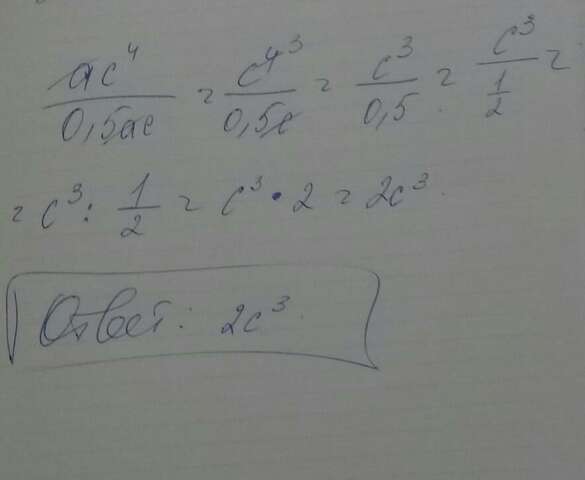 ac⁴/0,5ac = c⁴ ³/0,5c = c³/0,5 = c³/(1/2) =
= c³ : 1/2 = c³ · 2 = 2c³.
Ответ: 2c³.